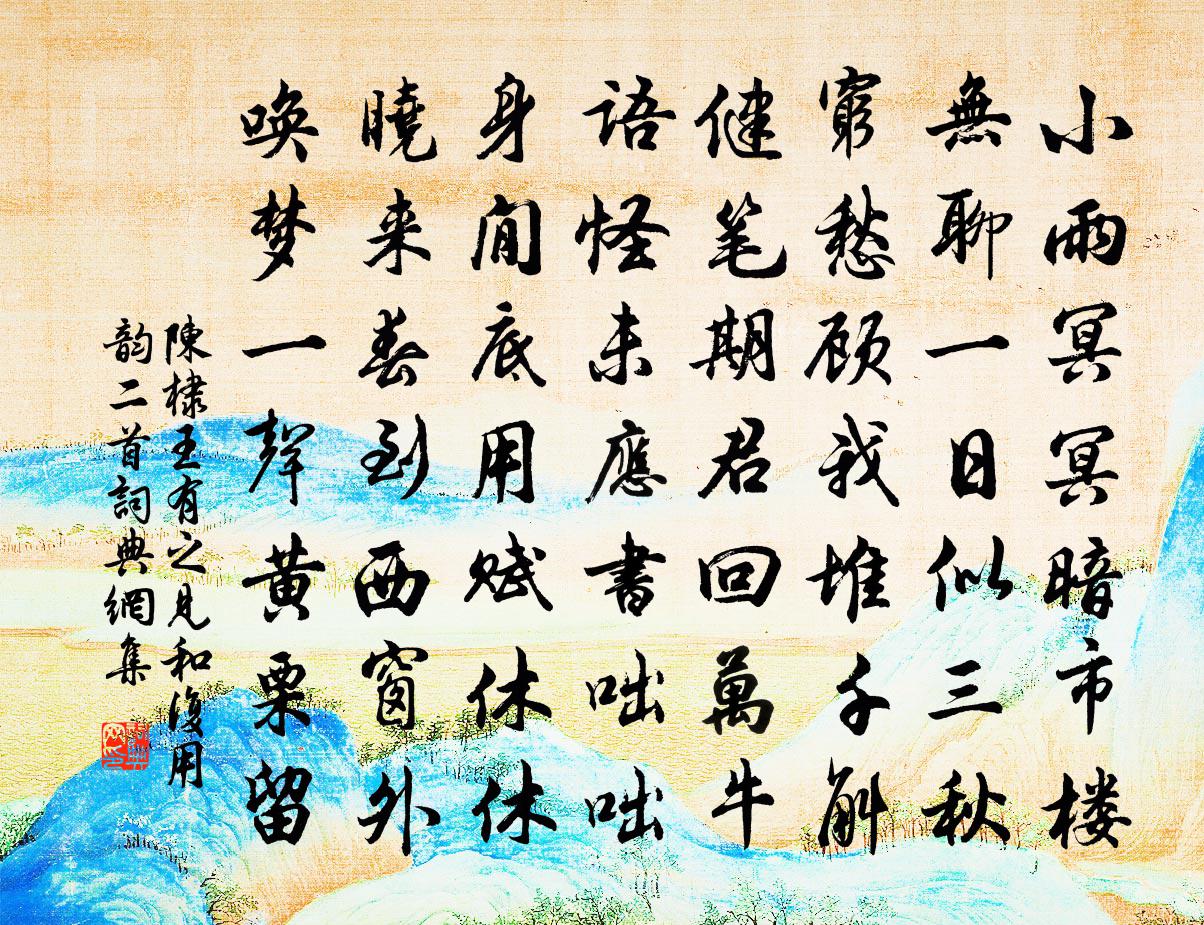 小雨冥冥暗市楼
無聊一日似三秋
窮愁顾我堆千斛
健笔期君回萬牛
語怪未應書咄咄
身閒底用赋休休
曉来春到西窗外
唤梦一聲黄栗留
陳棣王有之見和復用
韵二首詞典網集